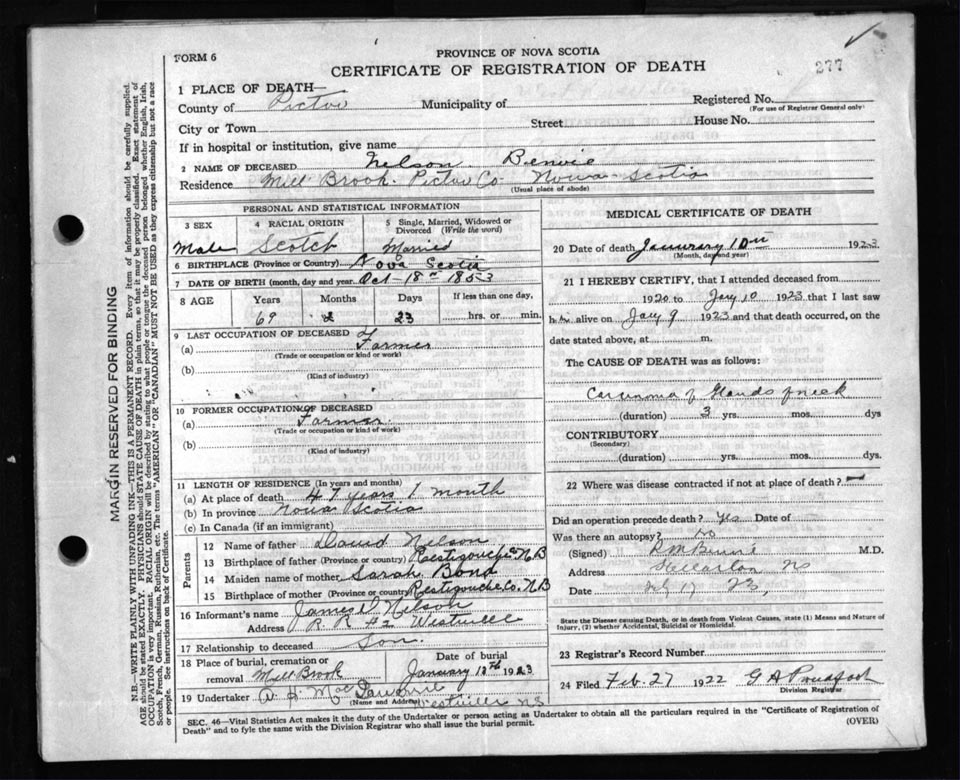 FORM 6
PROVINCE OF NOVA SCOTIA
CERTIFICATE OF REGISTRATION OF DEATH
277
1 PLACE OF DEATH—
County of Pictou Municipality of Registered No.
(For use of Registrar General only)
City or Town Street House No.
If in hospital or institution, give name
2 NAME OF DECEASED Nelson Benvie
Residence Mill Brook Pictou Co Nova Scotia
(Usual place of abode)
PERSONAL AND STATISTICAL INFORMATION
3 SEX 4 RACIAL ORIGIN 5 Single, Married, Widowed or Divorced (Write the word)
Male Scotch Married
6 BIRTHPLACE (Province or Country) Nova Scotia
7 DATE OF BIRTH (month, day and year) Oct 18th 1853
8 AGE Years Months Days If less than one day,
69 2 23 hrs. or min.
9 LAST OCCUPATION OF DECEASED
(a) Farmer
(Trade or occupation or kind or work)
(b)
(Kind of industry)
10 FORMER OCCUPATION OF DECEASED
(a) Farmer
(Trade or occupation or kind of work)
(b)
(Kind of industry)
11 LENGTH OF RESIDENCE (In years and months)
(a) At place of death 47 years 1 month
(b) In province Nova Scotia
(c) In Canada (if an immigrant)
Parents
12 Name of father David Nelson
13 Birthplace of father (Province or country) Restigouche N B
14 Maiden name of mother Sarah Bond
15 Birthplace of mother (Province or country) Restigouche Co. N B
16 Informant's name James D Nelson
Address R. R #2 Westville
17 Relationship to deceased Son.
18 Place of burial, cremation or removal Mill Brook Date of burial January 12th 1923
19 Undertaker A. H. Mac
(Name and Address) Westville N.S
MEDICAL CERTIFICATE OF DEATH
20 Date of death January 10th 1923
(Month, day and year)
21 I HEREBY CERTIFY, that I attended deceased from
1920 to Jany 10 1923 that I last saw
him alive on Jany 9 1923 and that death occurred, on the
date stated above, at m.
The CAUSE OF DEATH was as follows:
Carcinoma of Glands of neck
(duration) 3 yrs. mos. dys
CONTRIBUTORY
(Secondary)
(duration) yrs. mos. dys.
22 Where was disease contracted if not at place of death? —
Did an operation precede death? Yes Date of
Was there an autopsy? No
(Signed) M.D.
Address Stellarton NS
Date 17 23,
State the Disease causing Death, or in death from Violent Causes, state (1) Means and Nature of Injury, (2) whether Accidental, Suicidal or Homicidal.
23 Registrar's Record Number
24 Filed Feb. 27 1922 G A Proudfoot
Division Registrar
SEC. 46—Vital Statistics Act makes it the duty of the Undertaker or person acting as Undertaker to obtain all the particulars required in the "Certificate of Registration of
Death" and to fyle the same with the Division Registrar who shall issue the burial permit.
(OVER)
MARGIN RESERVED FOR BINDING
N.B.—WRITE PLAINLY WITH UNFADING INK—THIS IS A PERMANENT RECORD. Every item of information should be carefully supplied.
AGE should be stated EXACTLY. PHYSICIANS should STATE CAUSE OF DEATH in plain terms, so that it may be properly classified. Exact statement of
OCCUPATION is very important. RACIAL ORIGIN will be described by stating to what people or tongue the deceased person belonged whether English, Irish,
Scotch, French, German, Russian, Ruthenian, etc. The terms "AMERICAN" OR "CANADIAN" MUST NOT BE USED as they express citizenship but not a race
or people. See instructions on back of Certificate.